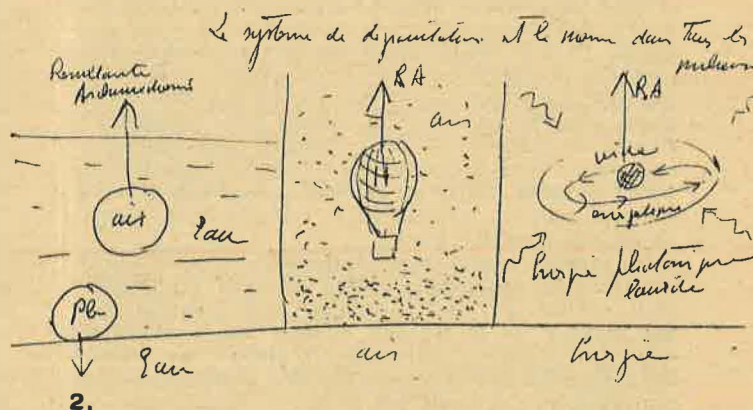 Le système de dégravitation et le meme dans tous les
milieux
Resultante
Archimedienne
RA
RA
air
vide
air
Eau
energie
Energie photonique
Pb
Eau
air
Energie
2.